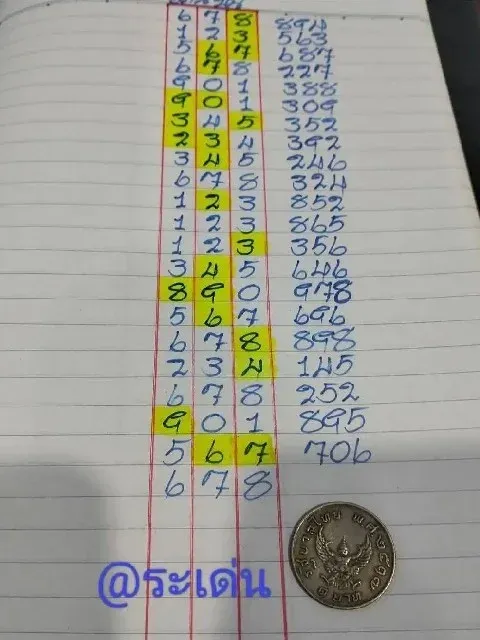 6 7 8 894
1 2 3 563
5 6 7 687
6 7 8 227
9 0 1 388
9 0 1 309
3 4 5 352
2 3 4 392
3 4 5 246
6 7 8 324
1 2 3 852
1 2 3 865
1 2 3 356
3 4 5 646
8 9 0 978
5 6 7 696
6 7 8 898
2 3 4 145
6 7 8 252
9 0 1 895
5 6 7 706
6 7 8
@ระเด่น
รัฐบาลไทย พ.ศ.๒๕๑๗
๑ บาท